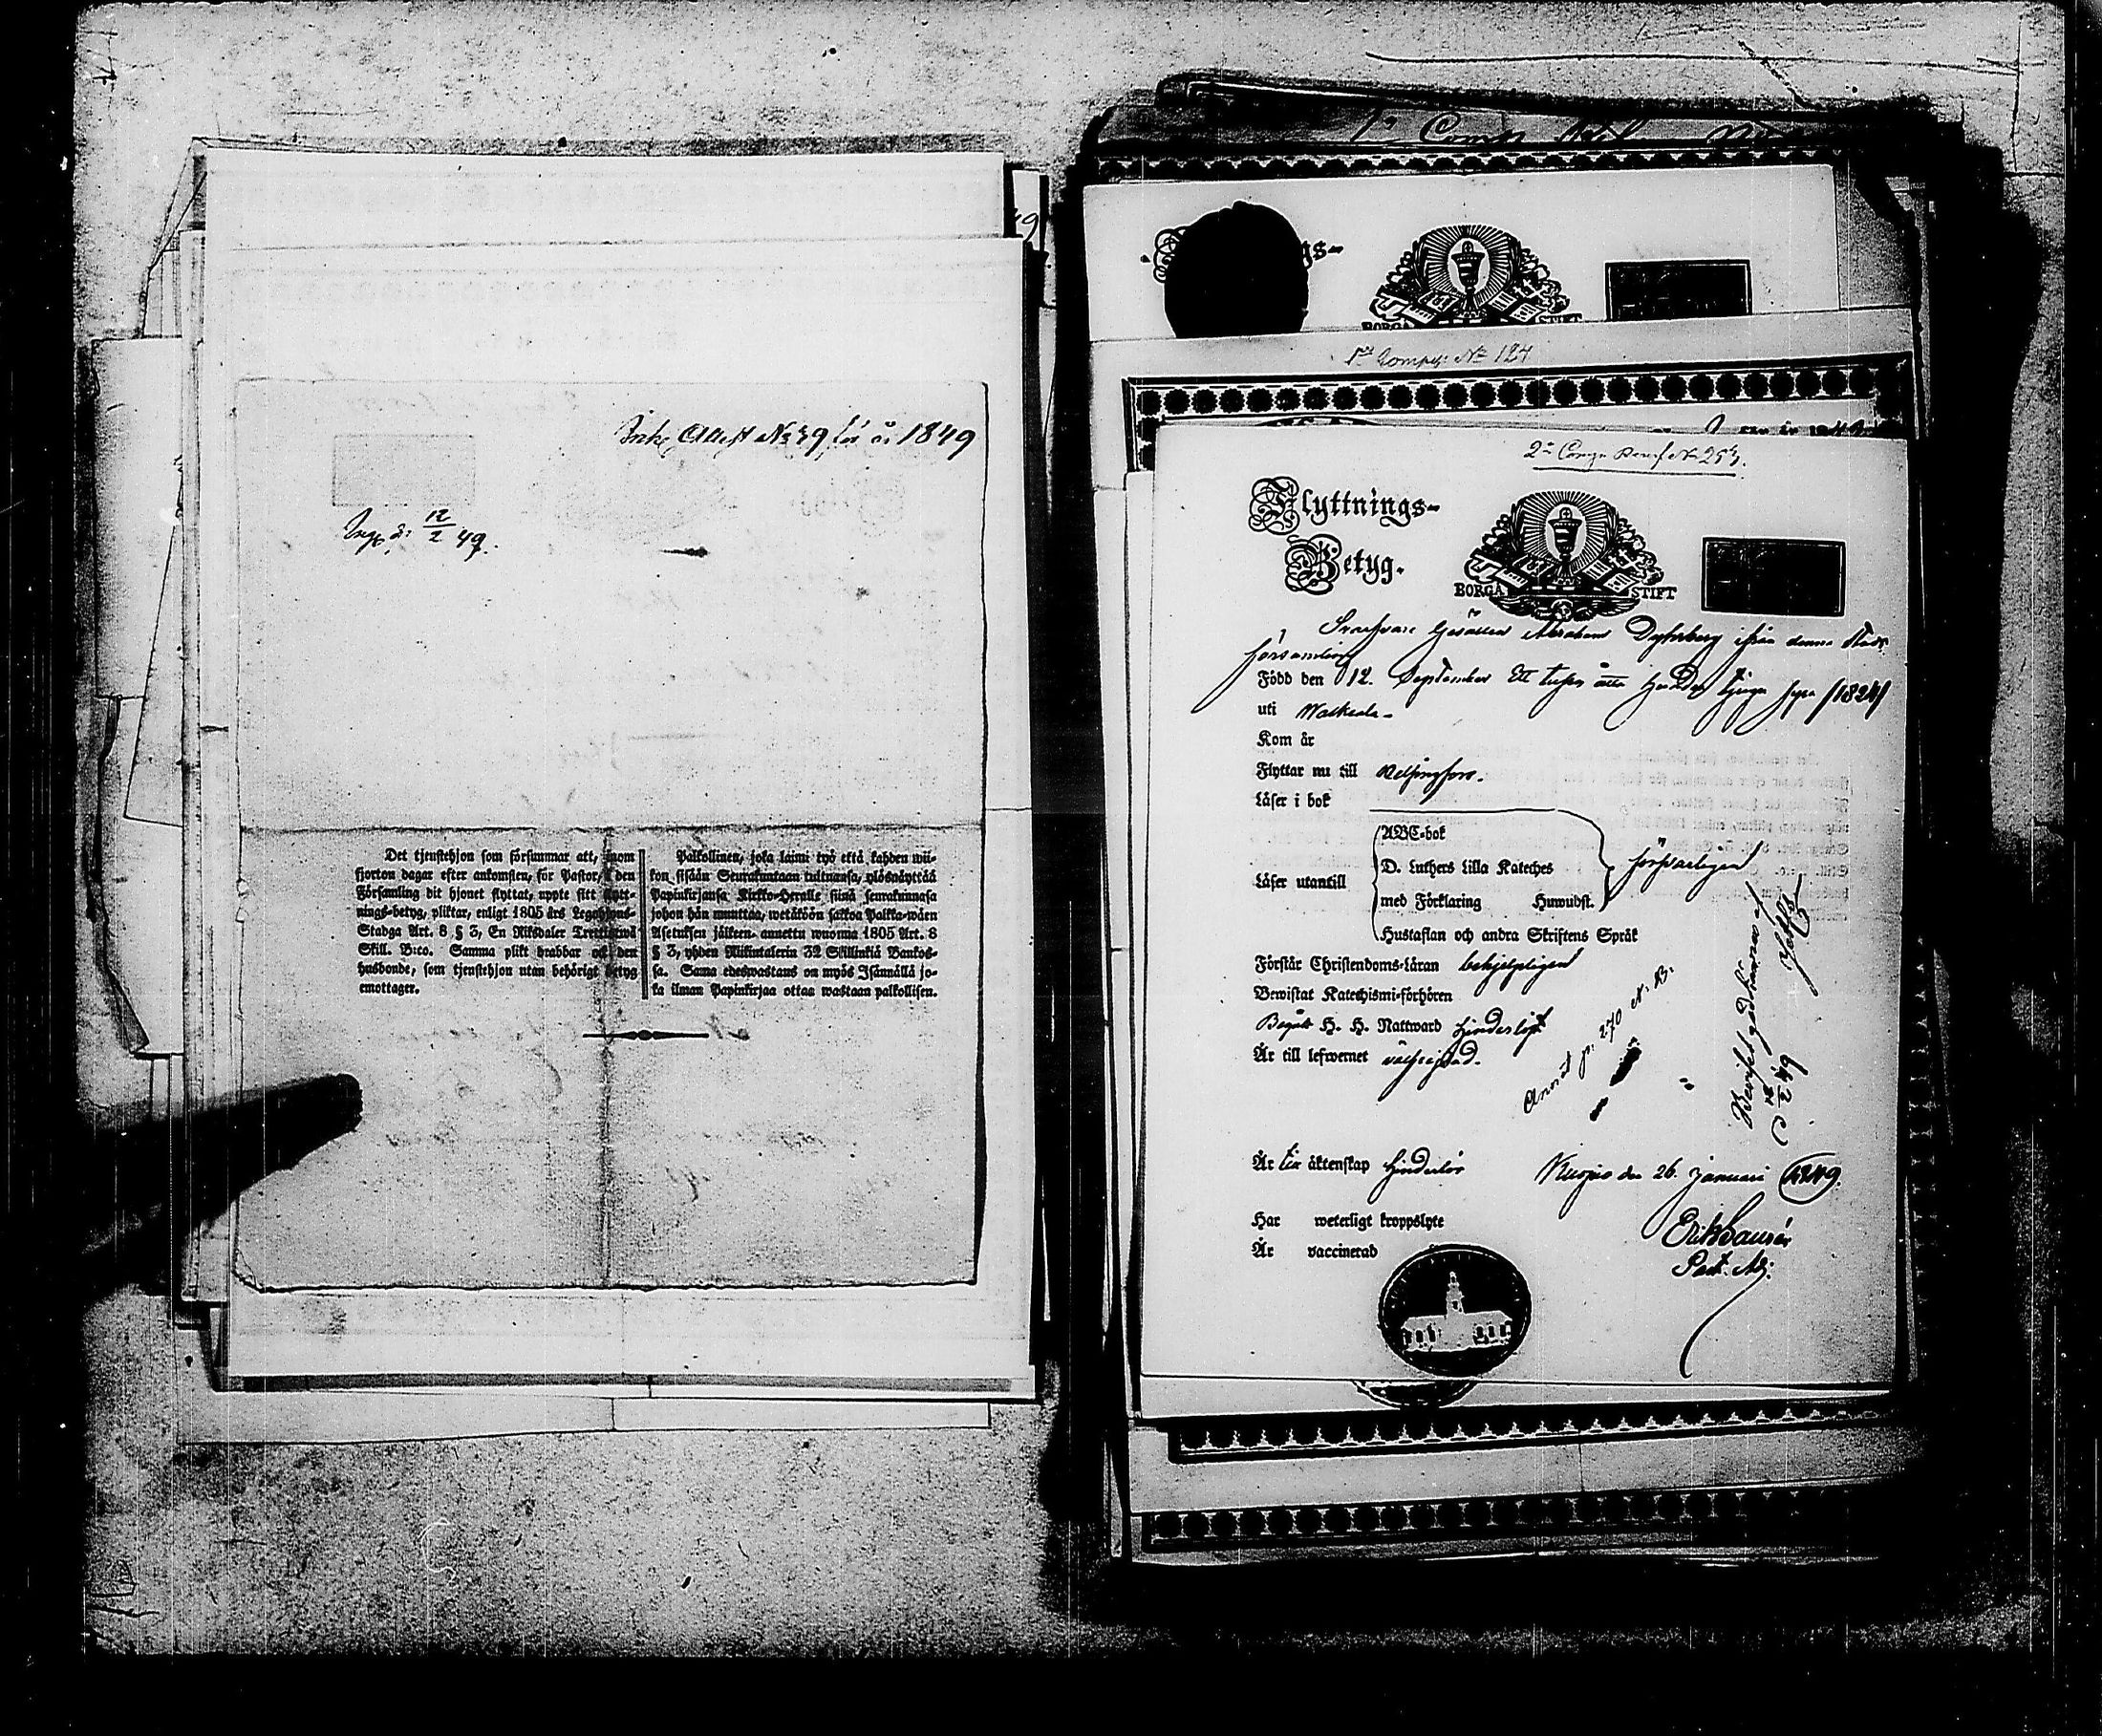 Ink. Attest No 39 för år 1849
Ingf. d: 12/2 49.
Det tjenstehjon som försummar att, inom
fjorton dagar efter ankomsten, för Pastor, i den
Församling dit hjonet flyttat, uppte sitt flytt-
nings-betyg, pliktar, enligt 1805 års Legohjons-
Stadga Art. 8 § 3, En Riksdaler Trettiotwå
Skill. B:co. Samma plikt drabbar och den
husbonde, som tjenstehjon utan behörigt betyg
emottager.
Palkollinen, joka laimi lyö että kahden wii-
kon sisään Seurakuntaan tultuansa, ylösnäyttää
Papinkirjansa Kirkko-Herralle siinä seurakunnasa
johon hän muuttaa, wetäköön sakkoa Palkka-wäen
Asetuksen jälkeen annettu wuonna 1805 Art. 8
§ 3, yhden Riikintalerin 32 Skillinkiä Bankos-
sa. Sama edeswastaus on myös Isännällä jo-
ka ilman Papinkirjaa ottaa wastaan palkollisen.
1a Comp. No 124
2a Comp.
Flyttnings-
Betyg.
BORGÅ STIFT
Gesällen Abraham Dyhrberg ifrån denna Stads
församling
Född den 12. September Ett tusen åtta hundra tjugu fyra /1824/
uti Walkeala
Kom år
Flyttar nu till Helsingfors.
Läser i bok
Läser utantill
ABC-bok
D. Luthers Lilla Kateches
med Förklaring Huwudst.
Hustaflan och andra Skriftens Språk
försvarligen
Förstår Christendoms-läran behjelpligen
Bewistat Katechismi-förhören
Begått H. H. Nattward hinderlöst
Är till lefwernet välfrejdad.
Annot. p. 270 N. B.
Bevistat gudstjensten
12/2 49
Är till äktenskap hinderlös
Kuopio den 26. Januari 1849.
Har weterligt kroppslyte
Är vaccinerad
Past. Adj: